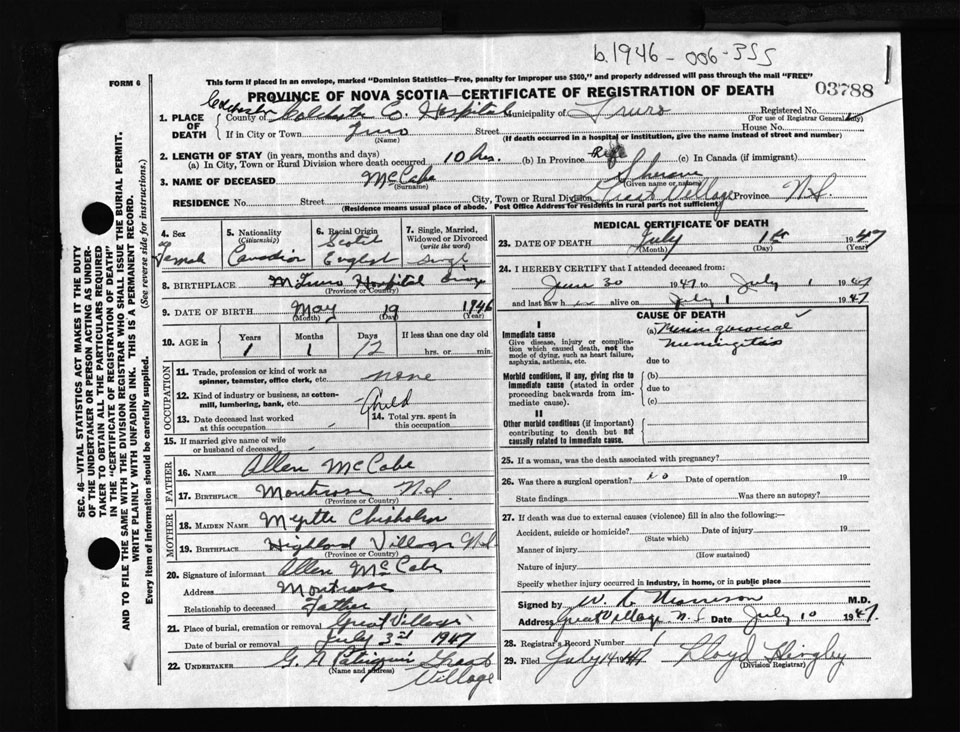 b.1946-006-355
This form if placed in an envelope, marked "Dominion Statistics—Free, penalty for improper use $300," and properly addressed will pass through the mail "FREE"
FORM 6
PROVINCE OF NOVA SCOTIA—CERTIFICATE OF REGISTRATION OF DEATH
03788
1. PLACE OF DEATH
County of Colchester Co. Hospital Municipality of Truro Registered No.
(For use of Registrar General only)
If in City or Town Truro Street House No.
(Name) (If death occurred in a hospital or institution, give the name instead of street and number)
2. LENGTH OF STAY (in years, months and days)
(a) In City, Town or Rural Division where death occurred 10 hrs. (b) In Province Life (c) In Canada (if immigrant)
3. NAME OF DECEASED McCabe
(Surname) (Given name or names)
RESIDENCE No. Street City, Town or Rural Division Great Village Province N.S.
(Residence means usual place of abode. Post Office Address for residents in rural parts not sufficient)
4. Sex Female
5. Nationality (Citizenship) Canadian
6. Racial Origin Scotch English
7. Single, Married, Widowed or Divorced (write the word) Single
8. BIRTHPLACE Truro Hospital
(Province or Country)
9. DATE OF BIRTH May 19 1946
(Month) (Day) (Year)
10. AGE in Years 1 Months 1 Days 12 If less than one day old
hrs. or min.
OCCUPATION
11. Trade, profession or kind of work as spinner, teamster, office clerk, etc. none
12. Kind of industry or business, as cotton-mill, lumbering, bank, etc. Child
13. Date deceased last worked at this occupation
14. Total yrs. spent in this occupation
15. If married give name of wife or husband of deceased
FATHER
16. NAME Allen McCabe
17. BIRTHPLACE Montrose N.S.
(Province or Country)
MOTHER
18. MAIDEN NAME Myrtle Chisholm
19. BIRTHPLACE Highland Village N.S.
(Province or Country)
20. Signature of informant Allen McCabe
Address Montrose
Relationship to deceased Father
21. Place of burial, cremation or removal Great Village
Date of burial or removal July 3rd 1947
22. UNDERTAKER G. A. Patriquin Great Village
(Name and address)
MEDICAL CERTIFICATE OF DEATH
23. DATE OF DEATH July 1st 1947
(Month) (Day) (Year)
24. I HEREBY CERTIFY that I attended deceased from:
June 30 1947 to July 1 1947
and last saw h alive on July 1 1947
CAUSE OF DEATH
I
Immediate cause
Give disease, injury or complication which caused death, not the mode of dying, such as heart failure, asphyxia, asthenia, etc.
(a) Meningococcal Meningitis
due to
Morbid conditions, if any, giving rise to immediate cause (stated in order proceeding backwards from immediate cause).
(b)
due to
(c)
II
Other morbid conditions (if important) contributing to death but not causally related to immediate cause.
25. If a woman, was the death associated with pregnancy?
26. Was there a surgical operation? no Date of operation 19
State findings Was there an autopsy?
27. If death was due to external causes (violence) fill in also the following:—
Accident, suicide or homicide? Date of injury 19
(State which)
Manner of injury
(How sustained)
Nature of injury
Specify whether injury occurred in industry, in home, or in public place
Signed by M.D.
Address Great Village N.S. Date July 10 1947
28. Registrar's Record Number 1
29. Filed July 14 1947 Lloyd Hingley
(Division Registrar)
SEC. 46—VITAL STATISTICS ACT MAKES IT THE DUTY
OF THE UNDERTAKER OR PERSON ACTING AS UNDER-
TAKER TO OBTAIN ALL THE PARTICULARS REQUIRED
IN THE "CERTIFICATE OF REGISTRATION OF DEATH"
AND TO FILE THE SAME WITH THE DIVISION REGISTRAR WHO SHALL ISSUE THE BURIAL PERMIT.
WRITE PLAINLY WITH UNFADING INK. THIS IS A PERMANENT RECORD.
Every item of information should be carefully supplied. (See reverse side for instructions.)